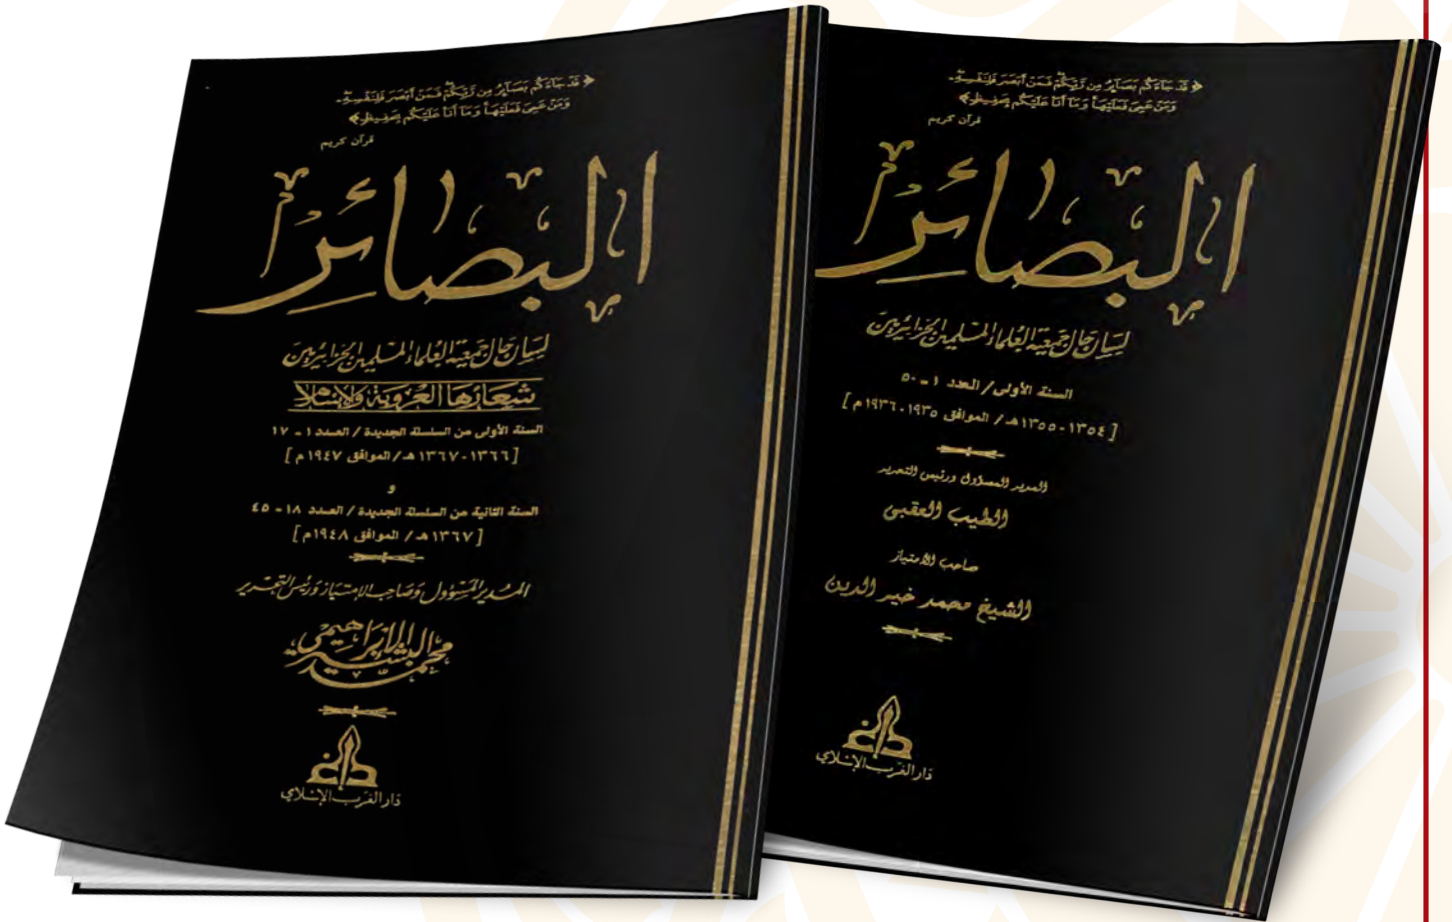 ﴿ قَدْ جَاءَكُم بَصَآئِرُ مِن رَّبِّكُمْ فَمَنْ أَبْصَرَ فَلِنَفْسِهِۦ
وَمَنْ عَمِىَ فَعَلَيْهَا وَمَآ أَنَا۠ عَلَيْكُم بِحَفِيظٍ ﴾
قرآن كريم
البصائر
لسان حال جمعية العلماء المسلمين الجزائريين
السنة الأولى / العدد ١ - ٥٠
[ ١٣٥٤ - ١٣٥٥ هـ / الموافق ١٩٣٥ - ١٩٣٦ م ]
المدير المسؤول ورئيس التحرير
الطيب العقبي
صاحب الامتياز
الشيخ محمد خير الدين
دار الغرب الإسلامي
﴿ قَدْ جَاءَكُم بَصَآئِرُ مِن رَّبِّكُمْ فَمَنْ أَبْصَرَ فَلِنَفْسِهِۦ
وَمَنْ عَمِىَ فَعَلَيْهَا وَمَآ أَنَا۠ عَلَيْكُم بِحَفِيظٍ ﴾
قرآن كريم
البصائر
لسان حال جمعية العلماء المسلمين الجزائريين
شعارها العروبة والإسلام
السنة الأولى من السلسلة الجديدة / العدد ١ - ١٧
[ ١٣٦٦ - ١٣٦٧ هـ / الموافق ١٩٤٧ م ]
و
السنة الثانية من السلسلة الجديدة / العدد ١٨ - ٤٥
[ ١٣٦٧ هـ / الموافق ١٩٤٨ م ]
المدير المسؤول وصاحب الامتياز ورئيس التحرير
محمد البشير الإبراهيمي
دار الغرب الإسلامي